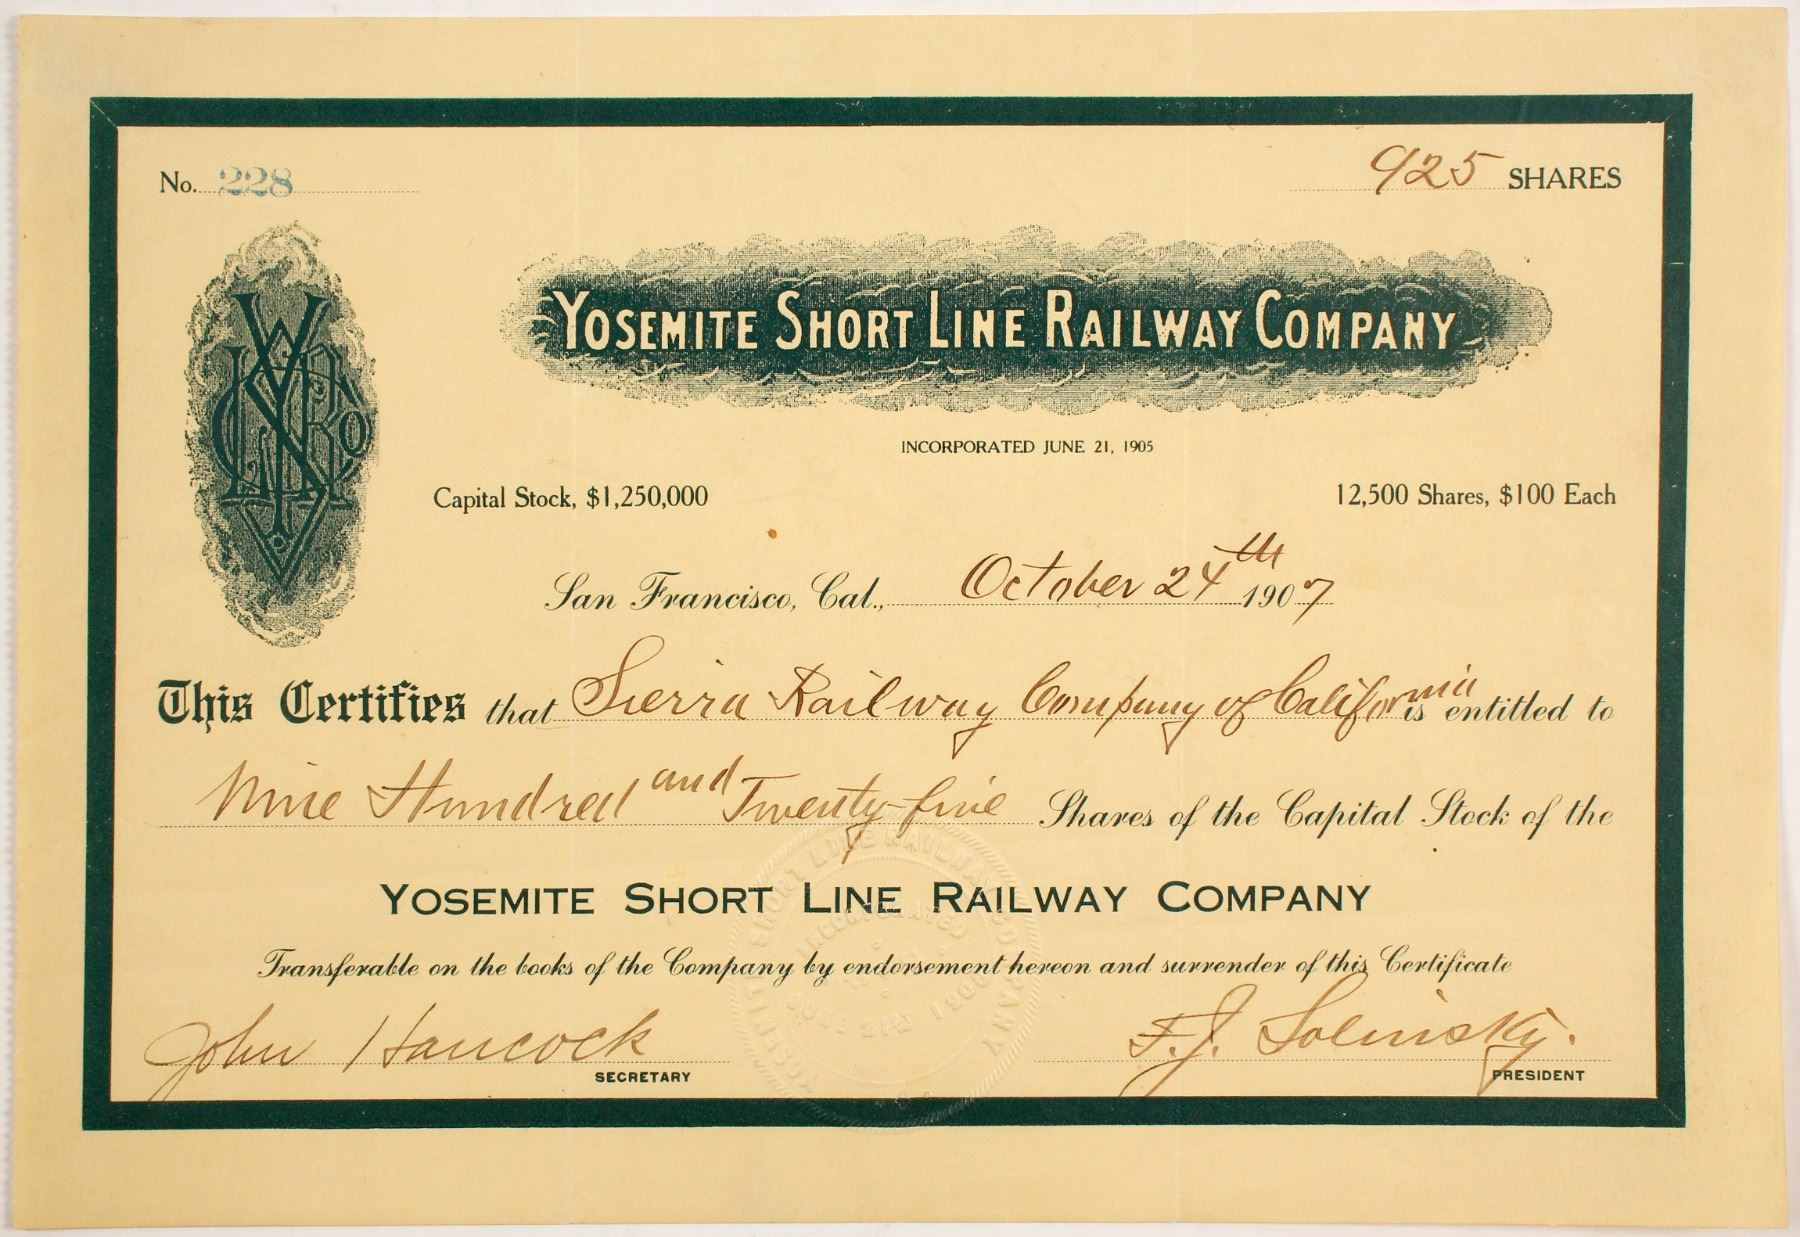 No. 228
925 SHARES
YOSEMITE SHORT LINE RAILWAY COMPANY
INCORPORATED JUNE 21, 1905
Capital Stock, $1,250,000
12,500 Shares, $100 Each
San Francisco, Cal., October 24th 1907
This Certifies that Sierra Railway Company of California is entitled to
Nine Hundred and Twenty-five Shares of the Capital Stock of the
YOSEMITE SHORT LINE RAILWAY COMPANY
Transferable on the books of the Company by endorsement hereon and surrender of this Certificate
John Hancock
SECRETARY
F. J. Solinsky.
PRESIDENT